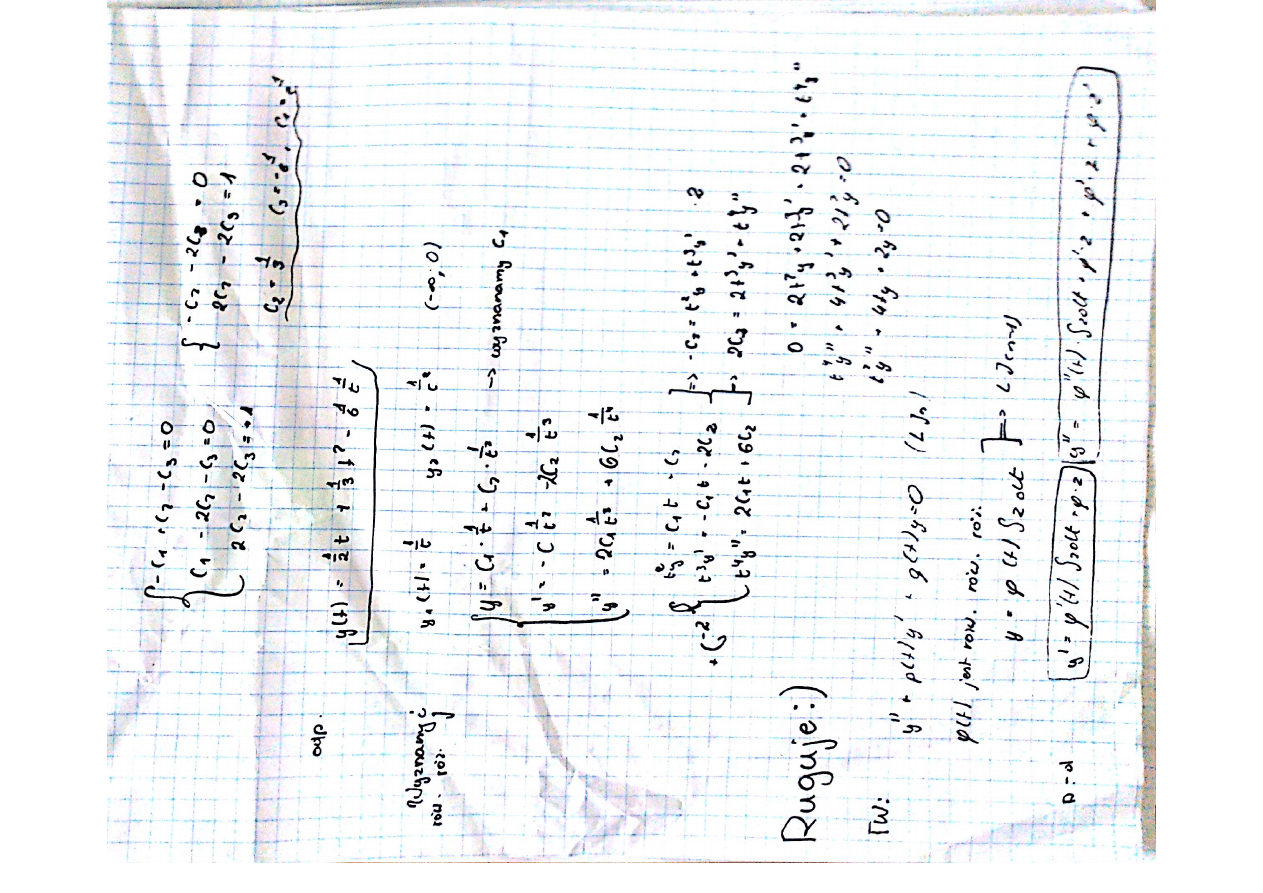 { -C₁ + C₂ - C₃ = 0
C₁ - 2C₂ - C₃ = 0
2C₂ - 2C₃ = +1
{ -C₂ - 2C₃ = 0
2C₂ - 2C₃ = 1
C₂ = 1/3 C₃ = -1/6
odp. y(t) = 1/2 t + 1/3 t² - 1/6 1/t
Wyznamy i
rów. róż.
y₁(t) = 1/t y₂(t) = 1/t² (-∞; 0)
{ y = C₁ · 1/t + C₂ · 1/t² -> wyznanamy C₁
y' = -C 1/t² - 2C₂ 1/t³
y'' = 2C₁ 1/t³ + 6C₂ 1/t⁴
t²y = C₁t + C₂
t³y' = -C₁t - 2C₂
t⁴y'' = 2C₁t + 6C₂
=> -C₂ = t²y + t³y' · 2
=> 2C₂ = 2t³y' + t⁴y''
0 = 2t²y + 2t³y' + 2t³y' + t⁴y''
t⁴y'' + 4t³y' + 2t²y = 0
t²y'' + 4ty + 2y = 0
Ruguje :)
TW:
y'' + p(t)y' + q(t)y = 0 (LJn)
φ(t) jest rozw. rów. róż.
y = φ(t) ∫zdt => LJ(n-1)
n=2 y' = φ'(t) ∫zdt + φ·z y'' = φ''(t) · ∫zdt + φ'·z + φ'·z + φ·z'